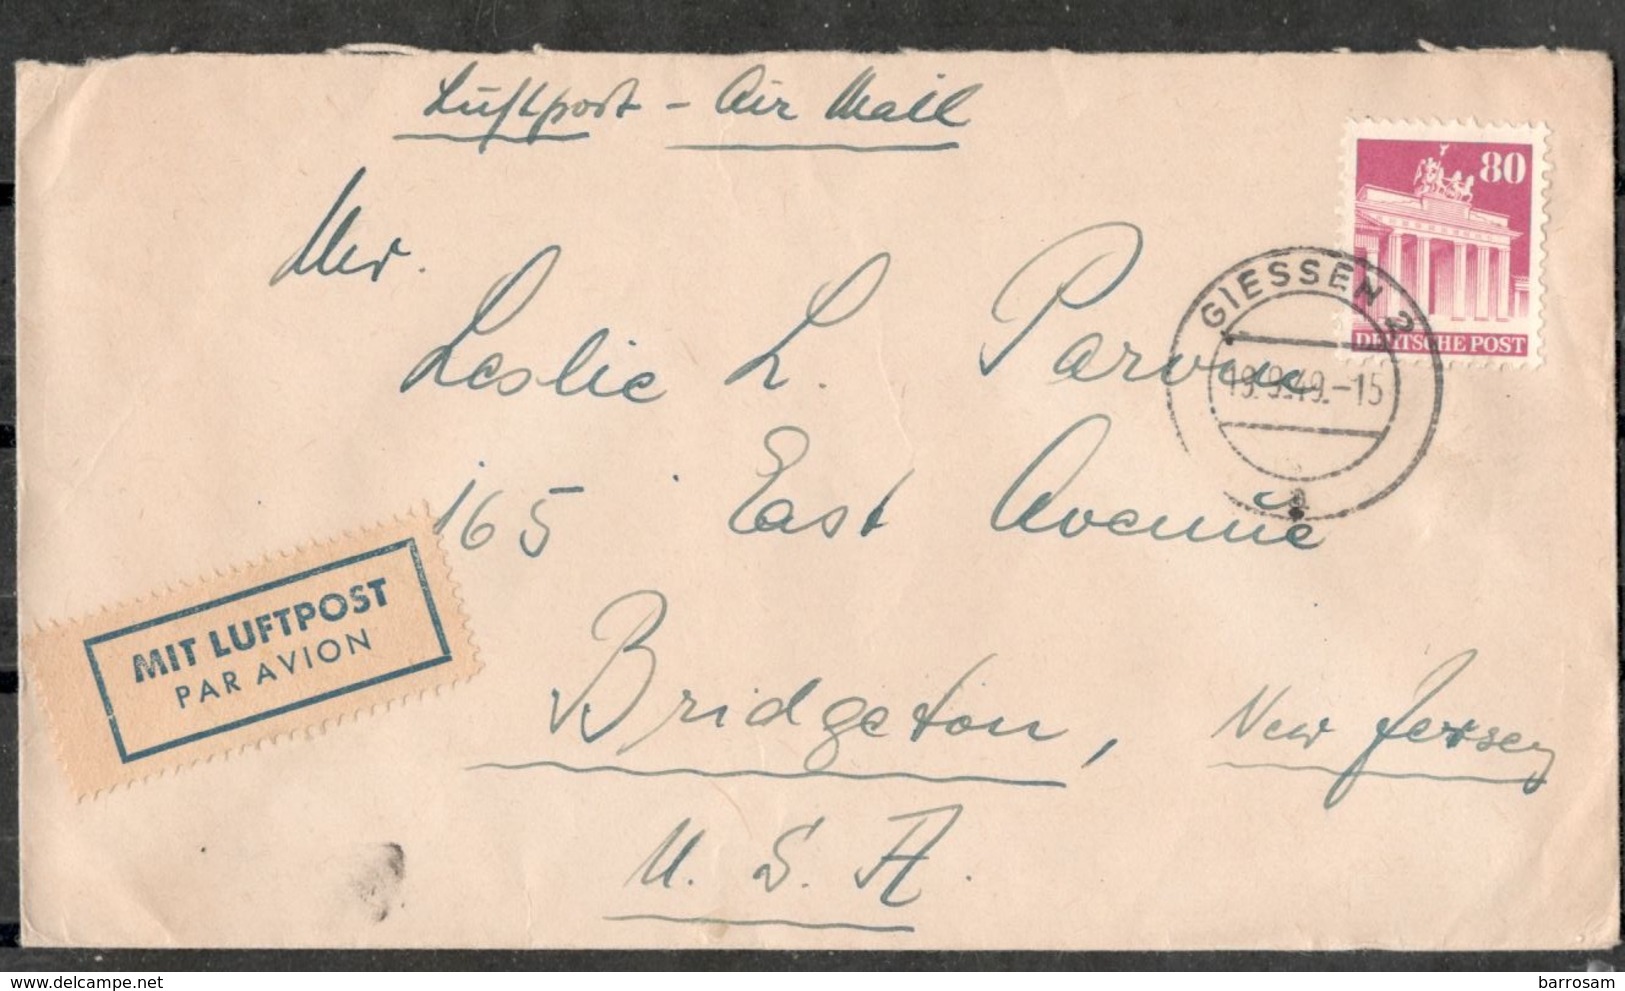 Luftpost - Air Mail
80
DEUTSCHE POST
GIESSEN 2
19.9.49.-15
a
Mr.
Leslie L. Parvin
165 East Avenue
MIT LUFTPOST
PAR AVION
Bridgeton, New Jersey
U. S. A.
barrosam